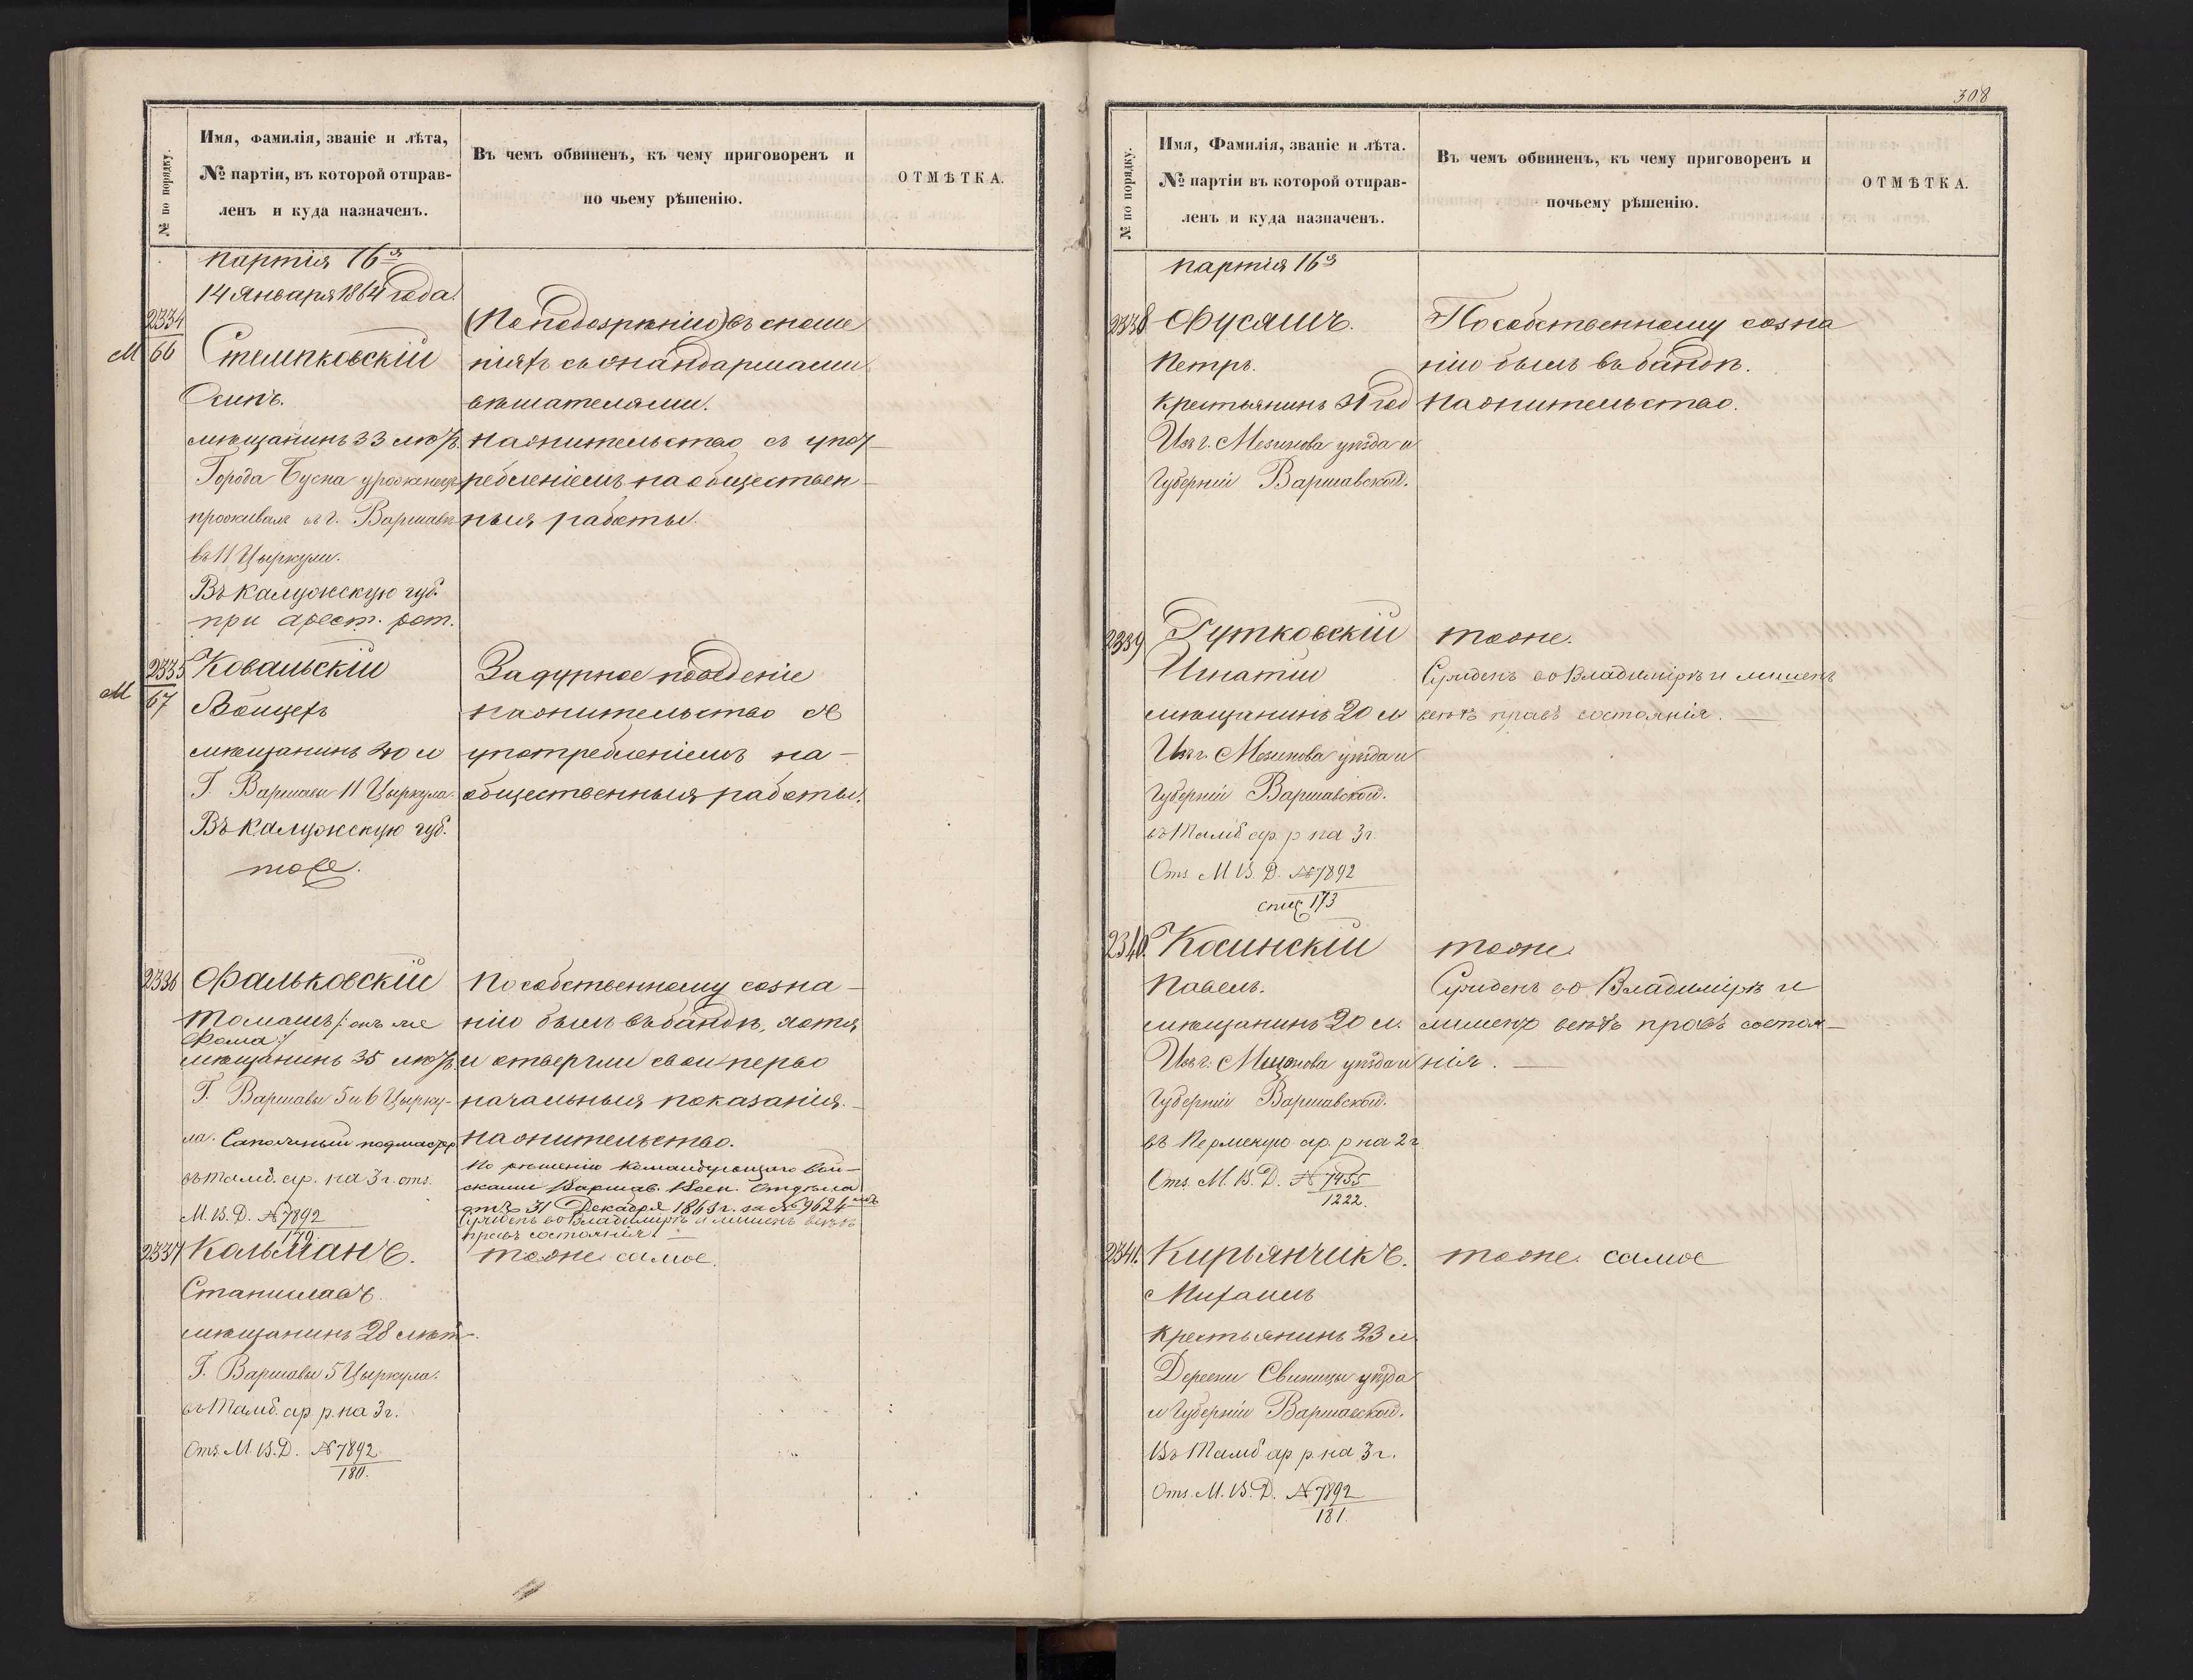 № по порядку.
Имя, фамилія, званіе и лѣта,
№ партіи, въ которой отправ-
ленъ и куда назначенъ.
Въ чемъ обвиненъ, къ чему приговоренъ и
по чьему рѣшенію.
ОТМѢТКА.
партія 16я
14 Января 1864 года.
2334
М 66
Стемпковскій
Осипъ.
мѣщанинъ 33 лѣтъ.
Города Буска уроженецъ
проживалъ въ г. Варшавѣ
въ 11 Цыркули.
Въ Калужскую губ.
при арест. рот.
(По подозрѣнію) въ сноше
ніяхъ съ жандармами
вѣшателями.
на жительство съ упот-
ребленіемъ на обществен-
ныя работы.
2335
М 67
Ковальскій
Войцехъ
мѣщанинъ 40 л
Г. Варшавы 11 Цыркула.
Въ Калужскую губ.
тоже.
За дурное поведеніе
на жительство съ
употребленіемъ на-
общественныя работы.
2336
Фальковскій
Томашъ /: онъ же
Фома :/
мѣщанинъ 35 лѣтъ.
Г. Варшавы 5 и 6 Цырку-
ла. Сапожный подмастер
въ тамб. ар. на 3 г. отз.
М. В. Д. № 7892
179.
По собственному созна-
нію былъ въ бандѣ, хотя
и отвергли свои перво
начальныя показанія.
на жительство.
По рѣшенію Командующаго Вой-
сками Варшав. Воен. Отдѣла
отъ 31 Декабря 1863 г. за № 9624
Сужденъ во Владимірѣ и лишенъ всѣхъ
правъ состоянія. —
2337
Кальманъ.
Станиславъ.
мѣщанинъ 28 лѣтъ.
Г. Варшавы 5 Цыркула.
въ Тамб. ар. р. на 3 г.
Отз. М. В. Д. № 7892
180.
тоже самое.
308
№ по порядку.
Имя, Фамилія, званіе и лѣта.
№ партіи въ которой отправ-
ленъ и куда назначенъ.
Въ чемъ обвиненъ, къ чему приговоренъ и
почьему рѣшенію.
ОТМѢТКА.
партія 16я
2338
Фусяшъ.
Петръ.
крестьянинъ 31 год
Изъ г. Мезинова уѣзда и
Губерніи Варшавской.
По собственному созна
нію былъ въ бандѣ.
на жительство.
2339
Гутковскій
Игнатій
мѣщанинъ 20 л
Изъ г. Мезинова уѣзда и
Губерніи Варшавской.
въ Тамб. ар. р на 3 г.
Отз. М. В. Д. № 7892
спис 173
тоже.
Сужденъ во Владимірѣ и лишенъ
всѣхъ правъ состоянія. —
2340.
Косинскій
Павелъ.
мѣщанинъ 20 л.
Изъ г. Мщонова уѣзда и
Губерніи Варшавской.
въ Пермскую ар. р на 2 г
Отз. М. В. Д. № 7455
1222.
тоже.
Сужденъ во Владимірѣ и
лишенъ всѣхъ правъ состоя-
нія. —
2341.
Кирьянчикъ.
Михаилъ
крестьянинъ 23 л.
Деревни Свиницы уѣзда
и Губерніи Варшавской.
Въ Тамб ар. р. на 3 г.
Отз. М. В. Д. № 7892
181.
тоже самое